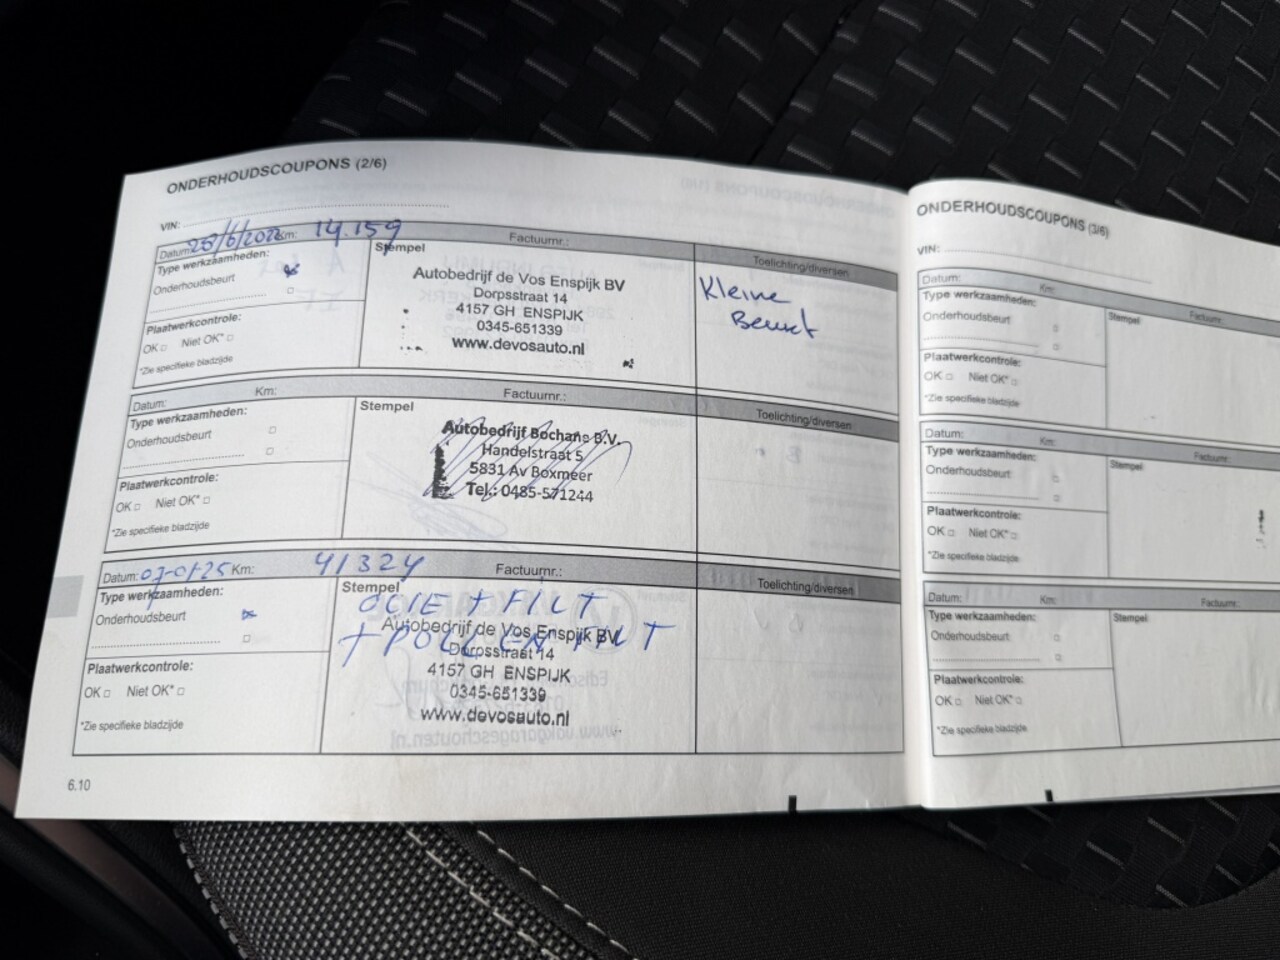 ONDERHOUDSCOUPONS (2/6)
VIN:
Datum: Km: 14.159 Factuurnr.:
Type werkzaamheden:
Onderhoudsbeurt
Plaatwerkcontrole:
OK Niet OK*
*Zie specifieke bladzijde
Stempel
Autobedrijf de Vos Enspijk BV
Dorpsstraat 14
4157 GH ENSPIJK
0345-651339
www.devosauto.nl
Toelichting/diversen
Kleine
Beurt
Datum: Km: Factuurnr.:
Type werkzaamheden:
Onderhoudsbeurt
Plaatwerkcontrole:
OK Niet OK*
*Zie specifieke bladzijde
Stempel
Autobedrijf Bochane B.V.
Handelstraat 5
5831 Av Boxmeer
Tel.: 0485-571244
Toelichting/diversen
Datum: 07-01-25 Km: 41324 Factuurnr.:
Type werkzaamheden:
Onderhoudsbeurt
Plaatwerkcontrole:
OK Niet OK*
*Zie specifieke bladzijde
Stempel
OLIE + FILT
+ POLLEN FILT
Autobedrijf de Vos Enspijk BV
Dorpsstraat 14
4157 GH ENSPIJK
0345-651339
www.devosauto.nl
Toelichting/diversen
6.10
ONDERHOUDSCOUPONS (3/6)
VIN:
Datum: Km: Factuurnr.:
Type werkzaamheden:
Onderhoudsbeurt
Plaatwerkcontrole:
OK Niet OK*
*Zie specifieke bladzijde
Stempel
Datum: Km: Factuurnr.:
Type werkzaamheden:
Onderhoudsbeurt
Plaatwerkcontrole:
OK Niet OK*
*Zie specifieke bladzijde
Stempel
Datum: Km: Factuurnr.:
Type werkzaamheden:
Onderhoudsbeurt
Plaatwerkcontrole:
OK Niet OK*
*Zie specifieke bladzijde
Stempel